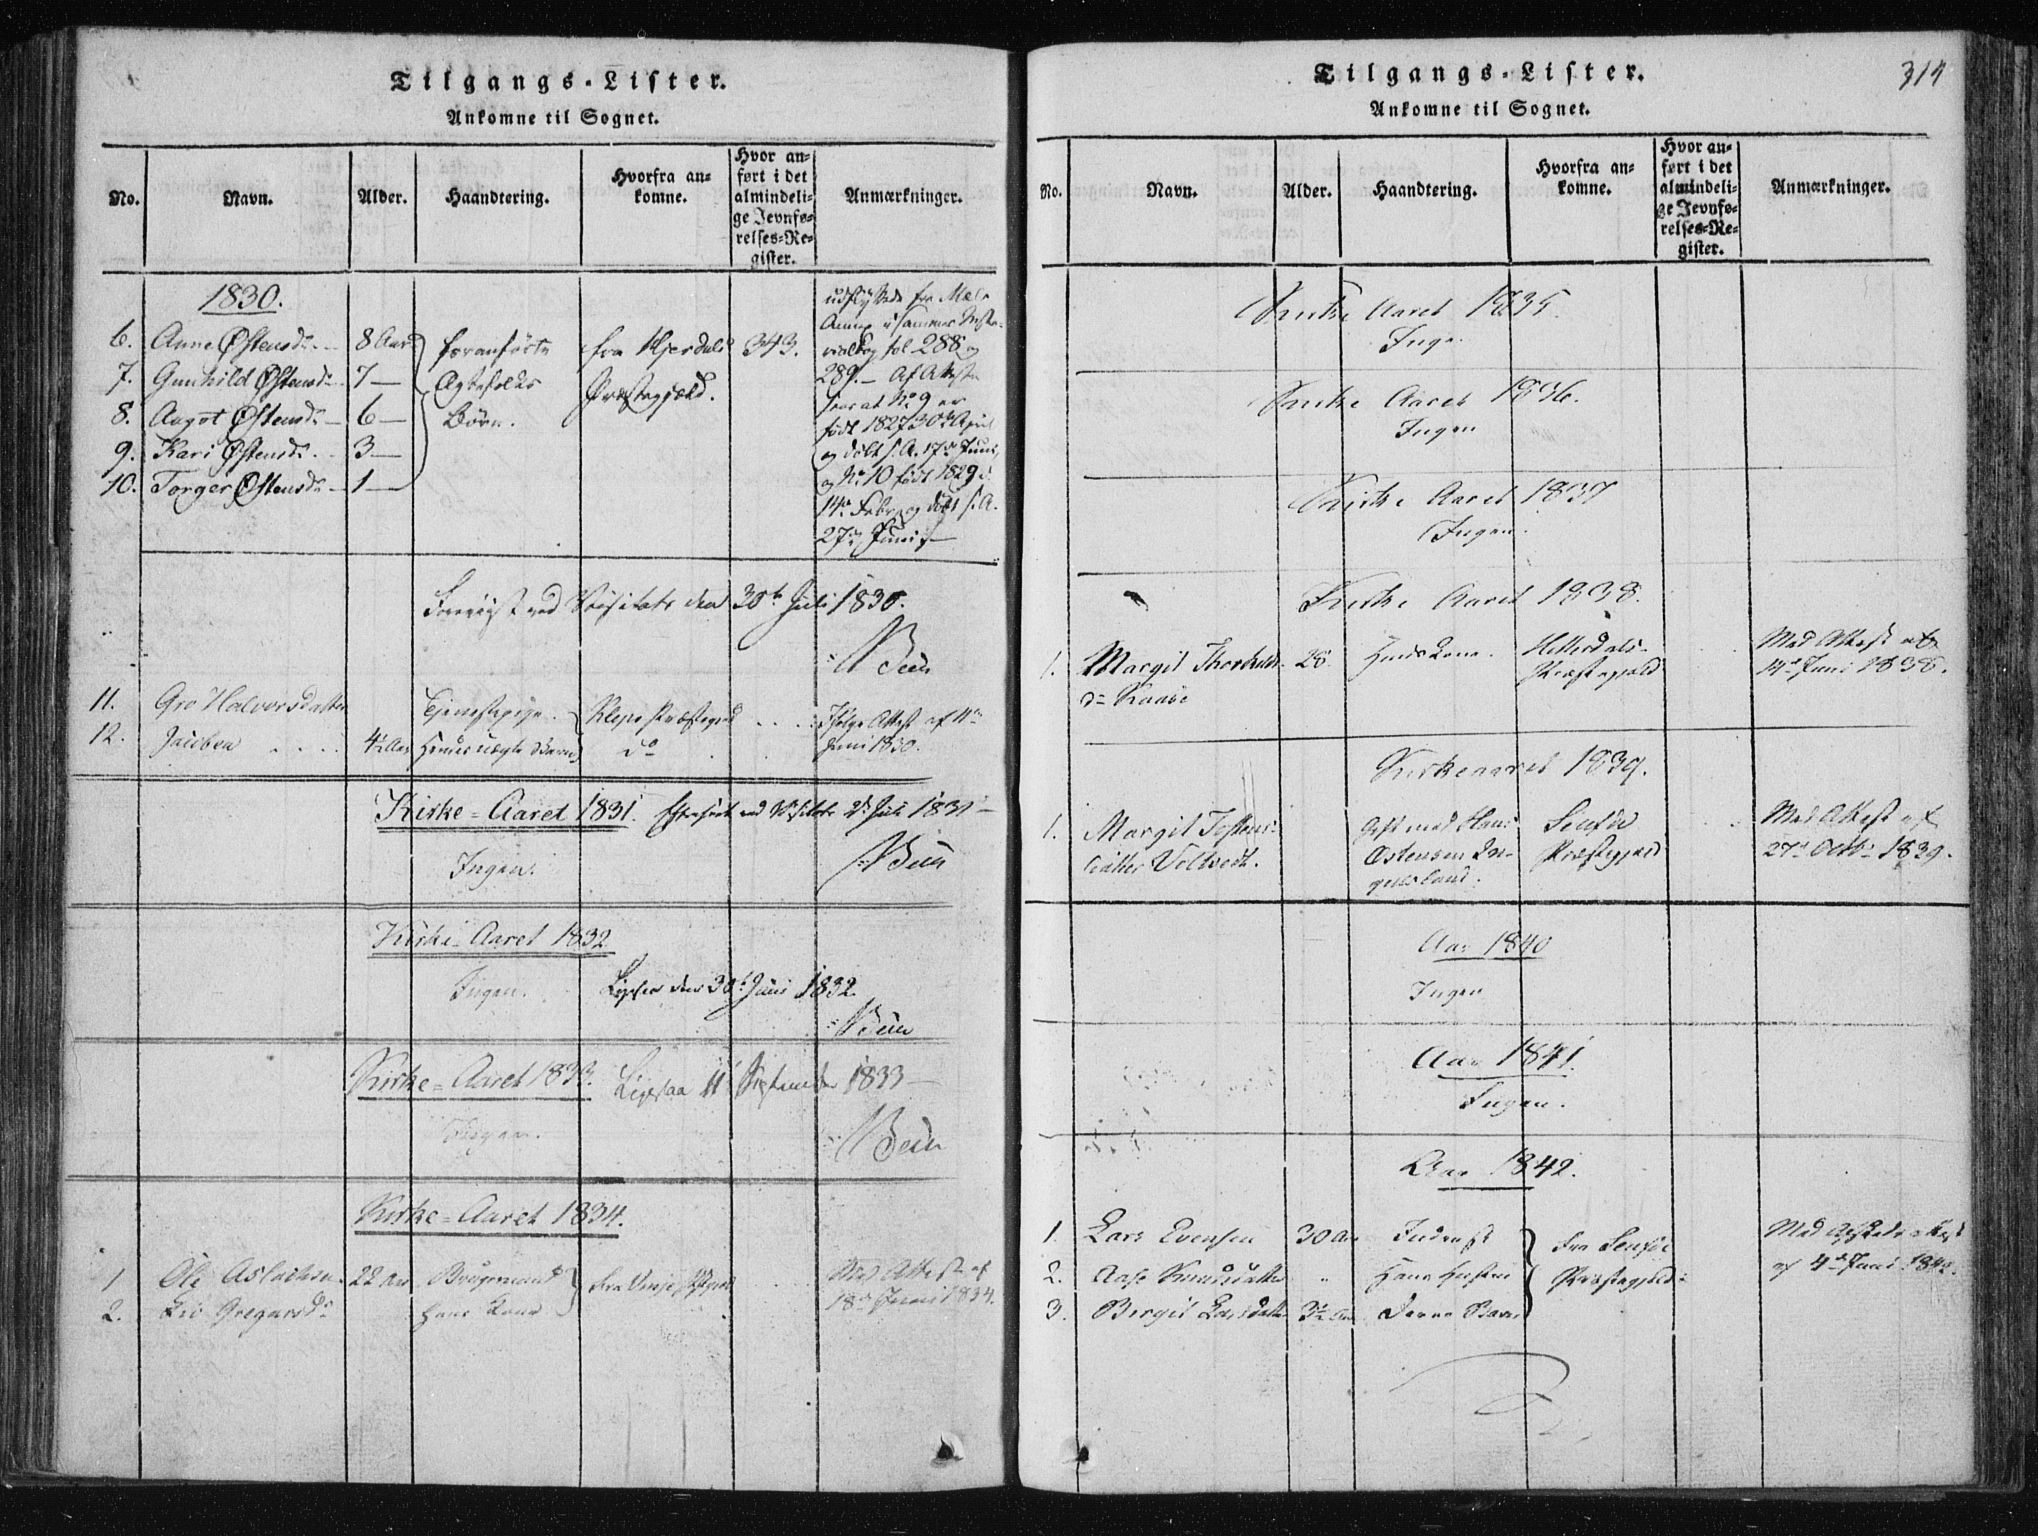 Tilgangs-Lister.
Ankomne til Sognet.
No. Navn. Alder. Haandtering. Hvorfra ankomne. Hvor anført i det almindelige Jevnførelses-Register. Anmærkninger.
1830.
6. Anne Østensd: 8 Aar foranførte fra Hjerdals 343.
7. Gunhild Østensd: 7 — Ægtefolks Præstegjæld.
8. Aagot Østensd: 6 — Børn.
9. Kari Østensd: 3 —
10. Torger Østensd: 1 —
udflyttede fra Mæls
Annex i samme
288 og
289. — Af Attesten
sees at No 9 er
født 1827 30te April
og døbt s. A. 17de Juni,
og No 10 født 1829 d.
14de Febr. og døbt s. A.
27de Juni. —
Foreviist ved Visitats den 30te Juli 1830.
11. Gro Halvorsdatter Tjenestepige. Klepe Præstegjeld Ifølge Attest af 11te
12. Jacobea 4½ Aar Hendes uægte Barn do Juni 1830.
Kirke-Aaret 1831. ved Visitats 2de Juli 1831 —
Ingen.
Kirke-Aaret 1832.
Ingen. Ligesaa den 30te Juni 1832.
Kirke-Aaret 1833. Ligesaa 11te September 1833 —
Ingen.
Kirke-Aaret 1834.
1 Ole Aslachsen 22 Aar Brugermand fra Vinje Med Attest af
2. Liv Gregarsd: Hans Kone 18de Juni 1834.
Tilgangs-Lister.
314
Ankomne til Sognet.
No. Navn. Alder. Haandtering. Hvorfra ankomne. Hvor anført i det almindelige Jevnførelses-Register. Anmærkninger.
Kirke Aaret 1835.
Ingen
Kirke Aaret 1836.
Ingen
Kirke Aaret 1837
Ingen.
Kirke Aaret 1838.
1. Margit 28. Hitterdals Med Attest af
d: Kaase Præstegjæld 14de Juni 1838.
Kirkeaaret 1839.
1. Margit Gift med Hans Med Attest af
datter Østensen Præstegjæld 27de Octbr 1839.
Aar 1840
Ingen
Aar 1841.
Ingen.
Aar 1842.
1. Lars Evensen 30 Aar Inderst fra Med
2. Aase Knudsdatter " Hans Hustru Præstegjeld: af 4de Juni 1842.
3. Birgit Larsdatter 3½ Aar Deres Barn